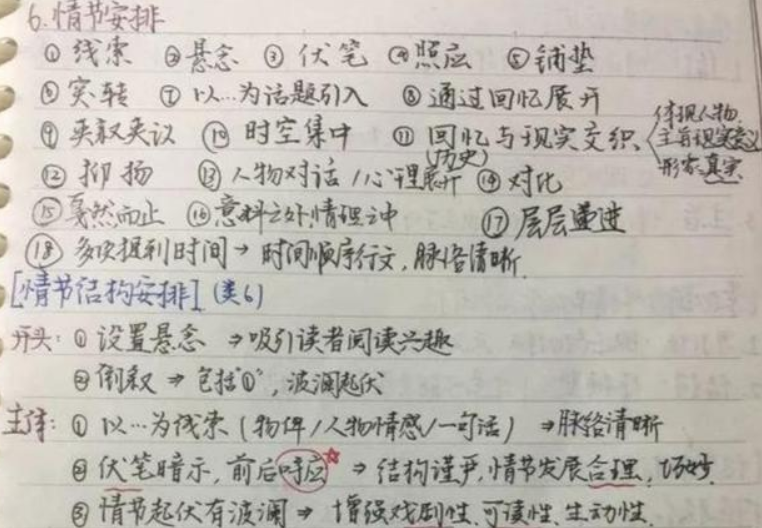 6.情节安排
① 线索 ② 悬念 ③ 伏笔 ④ 照应 ⑤ 铺垫
⑥ 突转 ⑦ 以…为话题引入 ⑧ 通过回忆展开
⑨ 夹叙夹议 ⑩ 时空集中 ⑪ 回忆(历史)与现实交织 体现人物 主旨现实意义 形象真实
⑫ 抑扬 ⑬ 人物对话/心理展开 ⑭ 对比
⑮ 戛然而止 ⑯ 意料之外,情理之中 ⑰ 层层递进
⑱ 多次提到时间→时间顺序行文,脉络清晰
[情节结构安排](类6)
开头: ① 设置悬念 ⇒吸引读者阅读兴趣
② 倒叙 ⇒ 包括①,波澜起伏
主体: ① 以…为线索(物件/人物情感/一句话) ⇒脉络清晰
② 伏笔暗示,前后呼应☆ ⇒ 结构谨严,情节发展合理,巧妙
③ 情节起伏有波澜⇒ 增强戏剧性、可读性、生动性